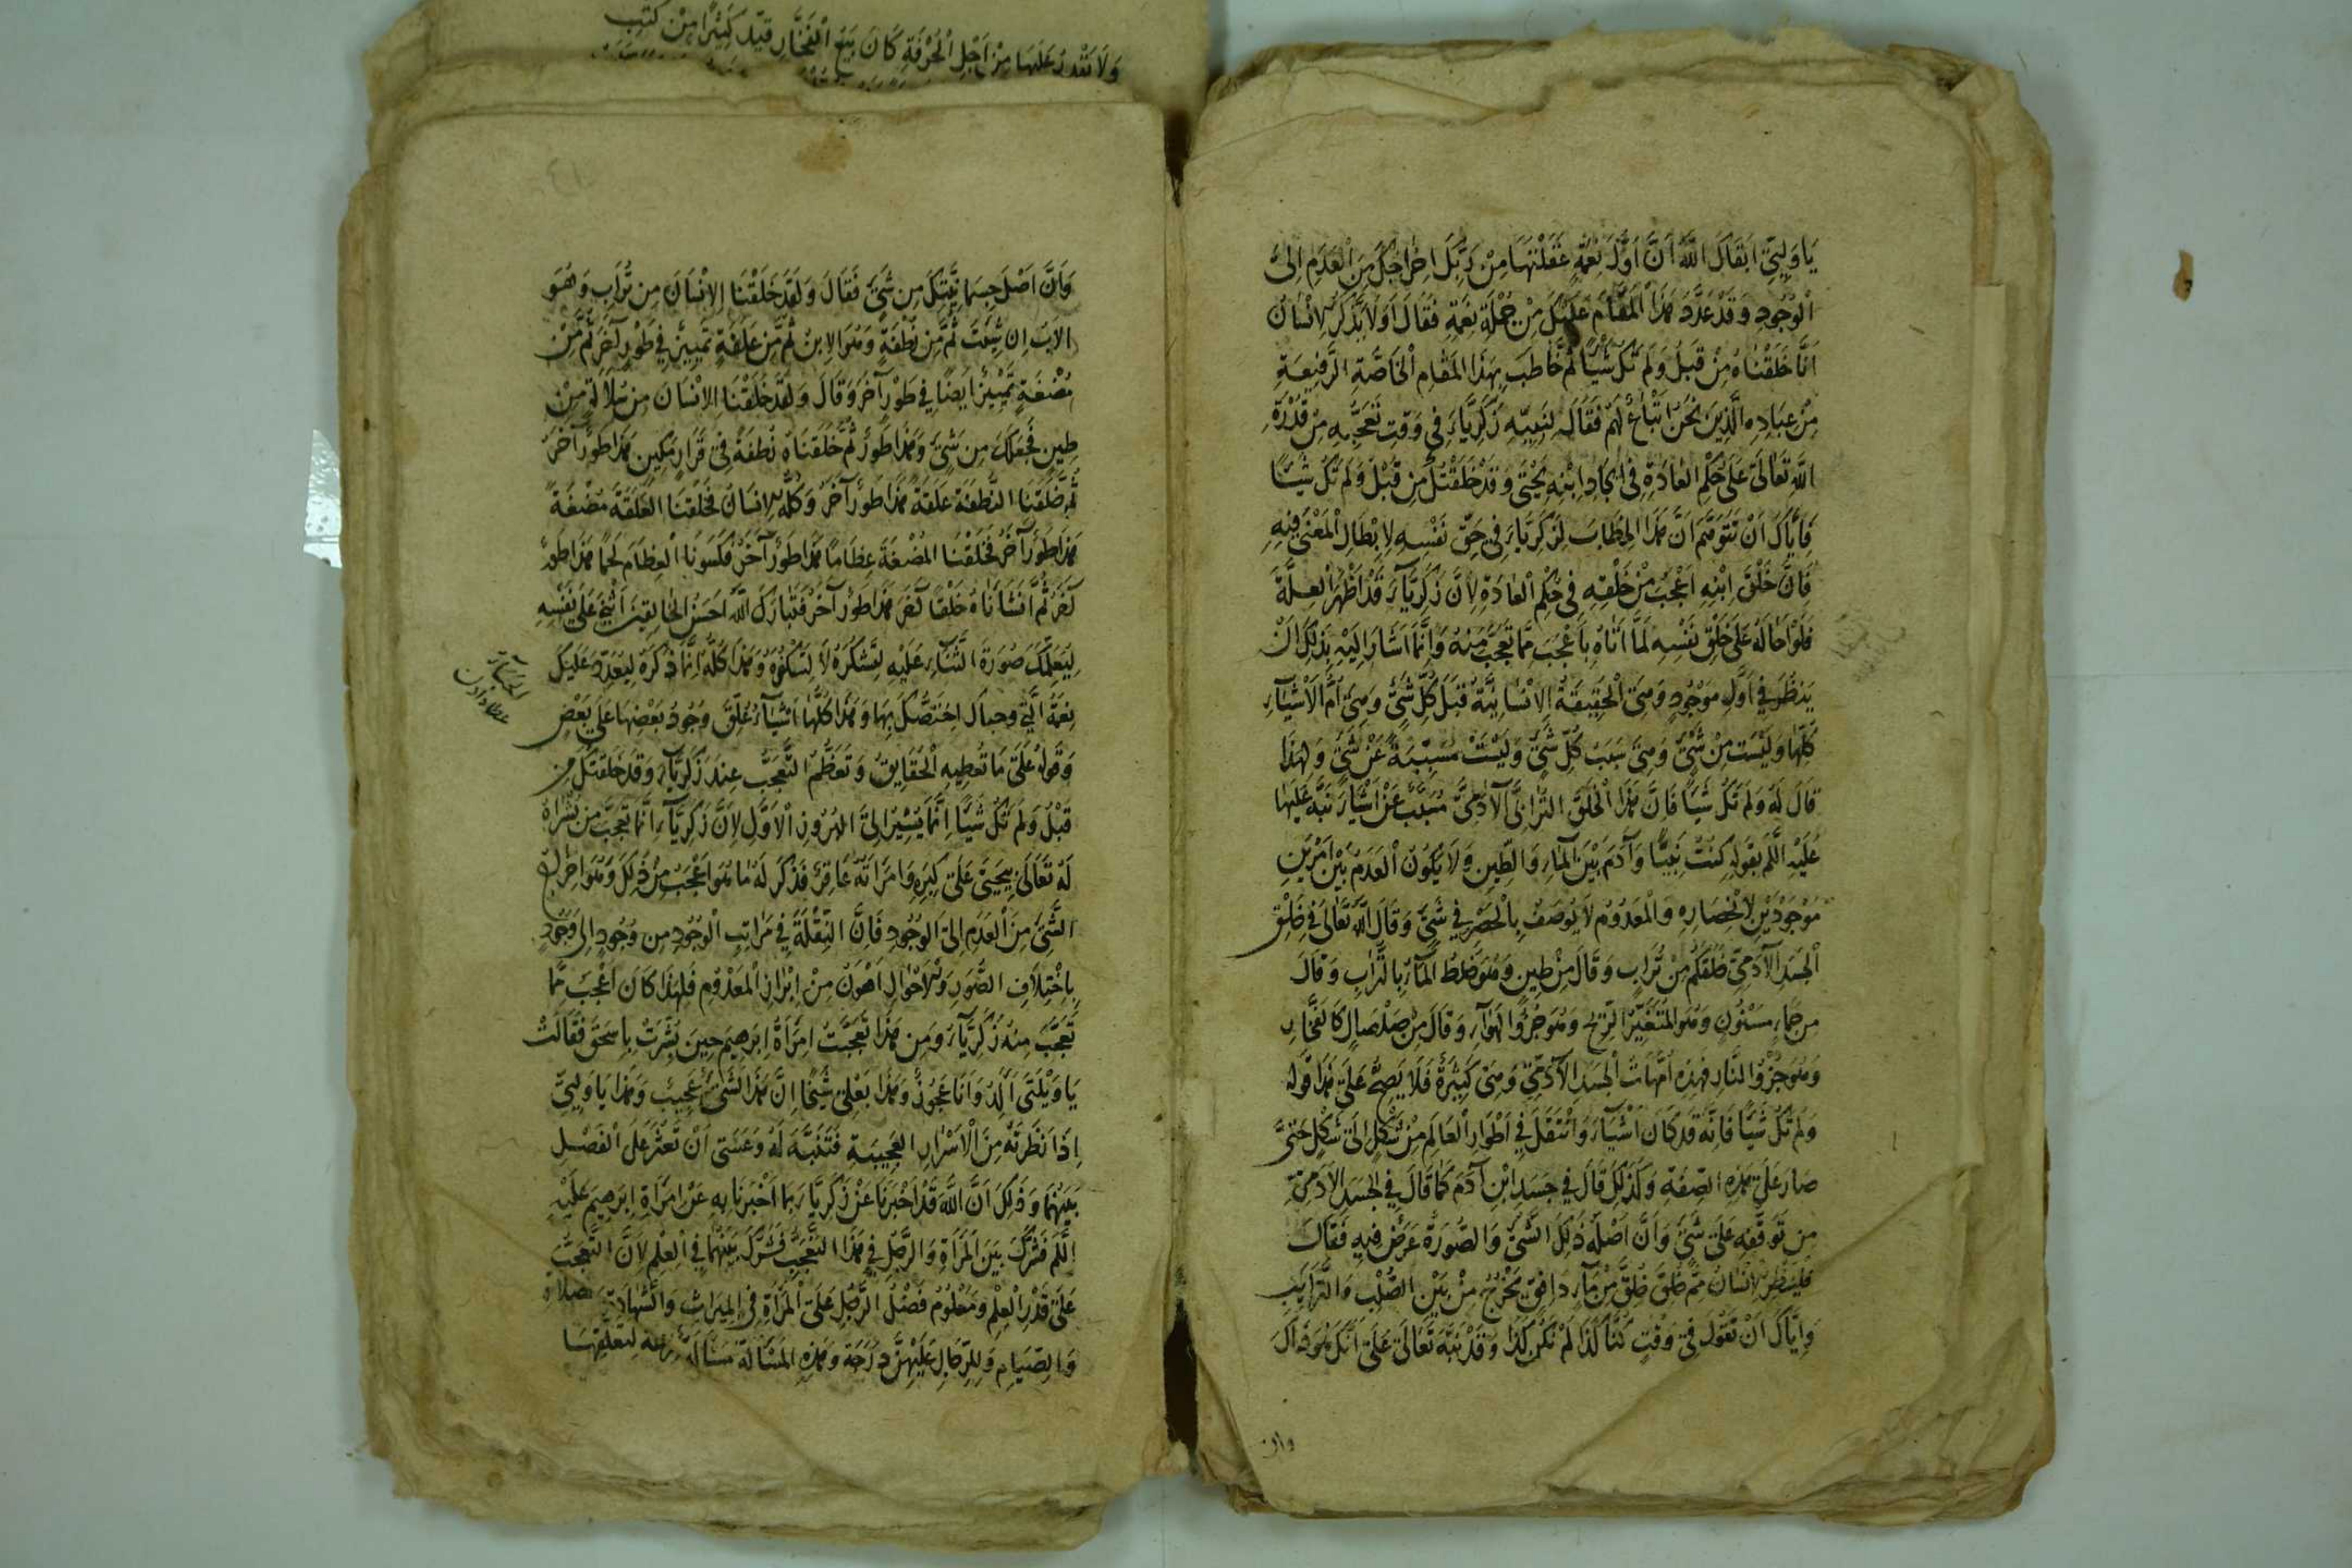 يَا وَلِيِّ ابْقَاكَ اللَّهُ أَنَّ أَوَّلَ نِعْمَةٍ عَقَلْتَهَا مِنْ رَبِّكَ إِخْرَاجُكَ مِنَ الْعَدَمِ إِلَى
الْوُجُودِ وَقَدْ عَدَّدَ هَذَا الْمَقَامَ عَلَيْكَ مِنْ جُمْلَةِ نِعَمِهِ فَقَالَ أَوَلَا يَذْكُرُ الْإِنْسَانُ
أَنَّا خَلَقْنَاهُ مِنْ قَبْلُ وَلَمْ تَكُ شَيْئًا ثُمَّ خَاطَبَ بِهَذَا الْمَقَامِ الْخَاصَّةَ الرَّفِيعَةِ
مِنْ عِبَادِهِ الَّذِينَ نَحْنُ أَتْبَاعٌ لَهُمْ فَقَالَ لِنَبِيِّهِ زَكَرِيَّاءَ فِي وَقْتِ تَعَجُّبِهِ مِنْ قُدْرَةِ
اللَّهِ تَعَالَى عَلَى حُكْمِ الْعَادَةِ فِي إِيجَادِ ابْنِهِ يَحْيَى وَقَدْ خَلَقْتُكَ مِنْ قَبْلُ وَلَمْ تَكُ شَيْئًا
فَإِيَّاكَ أَنْ تَتَوَهَّمَ أَنَّ هَذَا الْخِطَابَ لِزَكَرِيَّاءَ فِي حَقِّ نَفْسِهِ لِإِبْطَالِ الْمَعْنَى فِيهِ
فَإِنَّ خَلْقَ ابْنِهِ أَعْجَبُ مِنْ خَلْقِهِ فِي حُكْمِ الْعَادَةِ لِأَنَّ زَكَرِيَّاءَ قَدْ أَظْهَرَ الْعِلَّةَ
فَلَوْ أَحَالَهُ عَلَى خَلْقِ نَفْسِهِ لَمَا أَتَاهُ بِأَعْجَبَ مِمَّا تَعَجَّبَ مِنْهُ وَإِنَّمَا أَشَارَ إِلَيْهِ بِذَلِكَ أَنْ
يَنْظُرَ فِي أَوَّلِ مَوْجُودٍ وَهِيَ الْحَقِيقَةُ الْإِنْسَانِيَّةُ قَبْلَ كُلِّ شَيْءٍ وَهِيَ أُمُّ الْأَشْيَاءِ
كُلِّهَا وَلَيْسَتْ مِنْ شَيْءٍ وَهِيَ سَبَبُ كُلِّ شَيْءٍ وَلَيْسَتْ مُسَبَّبَةً عَنْ شَيْءٍ وَلِهَذَا
قَالَ لَهُ وَلَمْ تَكُ شَيْئًا فَإِنَّ هَذَا الْخَلْقَ التُّرَابِيَّ الْآدَمِيَّ مُسَبَّبٌ عَنْ أَشْيَاءَ نَبَّهَ عَلَيْهَا
عَلَيْهِ اللَّمُ بِقَوْلِهِ كُنْتُ نَبِيًّا وَآدَمُ بَيْنَ الْمَاءِ وَالطِّينِ وَلَا يَكُونُ الْعَدَمُ بَيْنَ أَمْرَيْنِ
مَوْجُودَيْنِ لِانْحِصَارِهِ وَالْمَعْدُومُ لَا يُوصَفُ بِالْحَصْرِ فِي شَيْءٍ وَقَالَ اللَّهُ تَعَالَى فِي خَلْقِ
الْجَسَدِ الْآدَمِيِّ خَلَقَكُمْ مِنْ تُرَابٍ وَقَالَ مِنْ طِينٍ وَهُوَ خَلْطُ الْمَاءِ بِالتُّرَابِ وَقَالَ
مِنْ حَمَاءٍ مَسْنُونٍ وَهُوَ الْمُتَغَيِّرُ الرِّيحِ وَهُوَ جُزْؤُ الْهَوَاءِ وَقَالَ مِنْ صَلْصَالٍ كَالْفَخَّارِ
وَهُوَ جُزْؤُ النَّارِ فَهَذِهِ أُمَّهَاتُ الْجَسَدِ الْآدَمِيِّ وَهِيَ كَثِيرَةٌ فَلَا يَصِحُّ عَلَى هَذَا قَوْلُهُ
وَلَمْ تَكُ شَيْئًا فَإِنَّهُ قَدْ كَانَ أَشْيَاءَ وَانْتَقَلَ فِي أَطْوَارِ الْعَالَمِ مِنْ شَكْلٍ إِلَى شَكْلٍ حَتَّى
صَارَ عَلَى هَذِهِ الصِّفَةِ وَكَذَلِكَ قَالَ فِي جَسَدِ ابْنِ آدَمَ كَمَا قَالَ فِي الْجَسَدِ الْآدَمِيِّ
مِنْ تَوَقُّفِهِ عَلَى شَيْءٍ وَأَنَّ أَصْلَهُ ذَلِكَ الشَّيْءُ وَالصُّورَةُ عَرَضٌ فِيهِ فَقَالَ
فَلْيَنْظُرِ الْإِنْسَانُ مِمَّ خُلِقَ خُلِقَ مِنْ مَاءٍ دَافِقٍ يَخْرُجُ مِنْ بَيْنِ الصُّلْبِ وَالتَّرَائِبِ
وَإِيَّاكَ أَنْ تَقُولَ فِي وَقْتٍ كُنَّا كَذَا لَمْ نَكُنْ كَذَا وَقَدْ نَبَّهَ تَعَالَى عَلَى أَنَّكَ هُوَ ذَاكَ
وان
وَلَا تَقْدِرُ عَلَيْهَا مِنْ أَجْلِ الْحِرْفَةِ كَانَ يَبِيعُ الْفَخَّارَ قَيَّدَ كَثِيرًا مِنْ كُتُبِ
وَأَنَّ أَصْلَ جِسْمَا تَيَّتِكَ مِنْ شَيْءٍ فَقَالَ وَلَقَدْ خَلَقْنَا الْإِنْسَانَ مِنْ تُرَابٍ وَهُوَ
الْأَبُ إِنْ شِئْتَ ثُمَّ مِنْ نُطْفَةٍ وَهُوَ الْإِبْنُ ثُمَّ مِنْ عَلَقَةٍ تَمْيِيزٌ فِي طَوْرٍ آخَرَ ثُمَّ مِنْ
مُضْغَةٍ تَمْيِيزٌ أَيْضًا فِي طَوْرٍ آخَرَ وَقَالَ وَلَقَدْ خَلَقْنَا الْإِنْسَانَ مِنْ سُلَالَةٍ مِنْ
طِينٍ فَجَعَلَكَ مِنْ شَيْءٍ وَهَذَا طَوْرٌ ثُمَّ خَلَقْنَاهُ نُطْفَةً فِي قَرَارٍ مَكِينٍ هَذَا طَوْرٌ آخَرُ
ثُمَّ خَلَقْنَا النُّطْفَةَ عَلَقَةً هَذَا طَوْرٌ آخَرُ وَكُلُّهُ الْإِنْسَانُ فَخَلَقْنَا الْعَلَقَةَ مُضْغَةً
هَذَا طَوْرٌ آخَرُ فَخَلَقْنَا الْمُضْغَةَ عِظَامًا هَذَا طَوْرٌ آخَرُ فَكَسَوْنَا الْعِظَامَ لَحْمًا هَذَا طَوْرٌ
آخَرُ ثُمَّ أَنْشَأْنَاهُ خَلْقًا آخَرَ هَذَا طَوْرٌ آخَرُ فَتَبَارَكَ اللَّهُ أَحْسَنُ الْخَالِقِينَ أَثْنَى عَلَى نَفْسِهِ
لِيُعَلِّمَكَ صُورَةَ الثَّنَاءِ عَلَيْهِ لِتَشْكُرَهُ لَا لِتَكْفُرَهُ وَهَذَا كُلُّهُ إِنَّمَا ذَكَرَهُ لِيُعَدِّدَ عَلَيْكَ
نِعَمَهُ الَّتِي وَحَبَاكَ اخْتَصَّكَ بِهَا وَهَذَا كُلُّهَا أَشْيَاءُ عَلَّقَ وُجُودَ بَعْضِهَا عَلَى بَعْضٍ
وَقَوْلُهُ عَلَى مَا تُعْطِيهِ الْحَقَايِقُ وَتَعَظُّمُ التَّعَجُّبِ عِنْدَ زَكَرِيَّاءَ وَقَدْ خَلَقْتُكَ مِنْ
قَبْلُ وَلَمْ تَكُ شَيْئًا إِنَّمَا يُشِيرُ إِلَى الْبُرُوزِ الْأَوَّلِ لِأَنَّ زَكَرِيَّاءَ إِنَّمَا تَعَجَّبَ مِنْ بُشْرَاهُ
لَهُ تَعَالَى بِيَحْيَى عَلَى كِبَرِهِ وَامْرَأَتُهُ عَاقِرٌ فَذَكَرَ لَهُ مَا هُوَ أَعْجَبُ مِنْ ذَلِكَ وَهُوَ إِخْرَاجُ
الشَّيْءِ مِنَ الْعَدَمِ إِلَى الْوُجُودِ فَإِنَّ النَّقْلَةَ فِي مَرَاتِبِ الْوُجُودِ مِنْ وُجُودٍ إِلَى وُجُودٍ
بِاخْتِلَافِ الصُّوَرِ وَالْأَحْوَالِ أَهْوَنُ مِنْ إِبْرَازِ الْمَعْدُومِ فَلِهَذَا كَانَ أَعْجَبَ مِمَّا
تَعَجَّبَ مِنْهُ زَكَرِيَّاءُ وَمِنْ هَذَا تَعَجَّبَتْ امْرَأَةُ إِبْرَهِيمَ حِينَ بُشِّرَتْ بِإِسْحَقَ فَقَالَتْ
يَا وَيْلَتَى أَأَلِدُ وَأَنَا عَجُوزٌ وَهَذَا بَعْلِي شَيْخًا إِنَّ هَذَا لَشَيْءٌ عَجِيبٌ وَهَذَا يَا وَلِيِّ
إِذَا نَظَرْتَهُ مِنَ الْأَسْرَارِ الْعَجِيبَةِ فَتَنَبَّهْ لَهُ وَعَسَى أَنْ تَعْثُرَ عَلَى الْفَصْلِ
بَيْنَهُمَا وَذَلِكَ أَنَّ اللَّهَ قَدْ أَخْبَرَنَا عَنْ زَكَرِيَّاءَ بِمَا أَخْبَرَنَا بِهِ عَنْ امْرَأَةِ إِبْرَهِيمَ عَلَيْهِ
اللَّمُ فَشَرَّكَ بَيْنَ الْمَرْأَةِ وَالرَّجُلِ فِي هَذَا التَّعَجُّبِ فَشَرَّكَ بَيْنَهُمَا فِي الْعِلْمِ لِأَنَّ التَّعَجُّبَ
عَلَى قَدْرِ الْعِلْمِ وَمَعْلُومٌ فَضْلُ الرَّجُلِ عَلَى الْمَرْأَةِ فِي الْمِيرَاثِ وَالشَّهَادَةِ وَالصلاة
وَالصِّيَامِ وَلِلرِّجَالِ عَلَيْهِنَّ دَرَجَةٌ وَهَذِهِ الْمَسْأَلَةُ مَسْأَلَةٌ لِتَعَلُّقِهَا